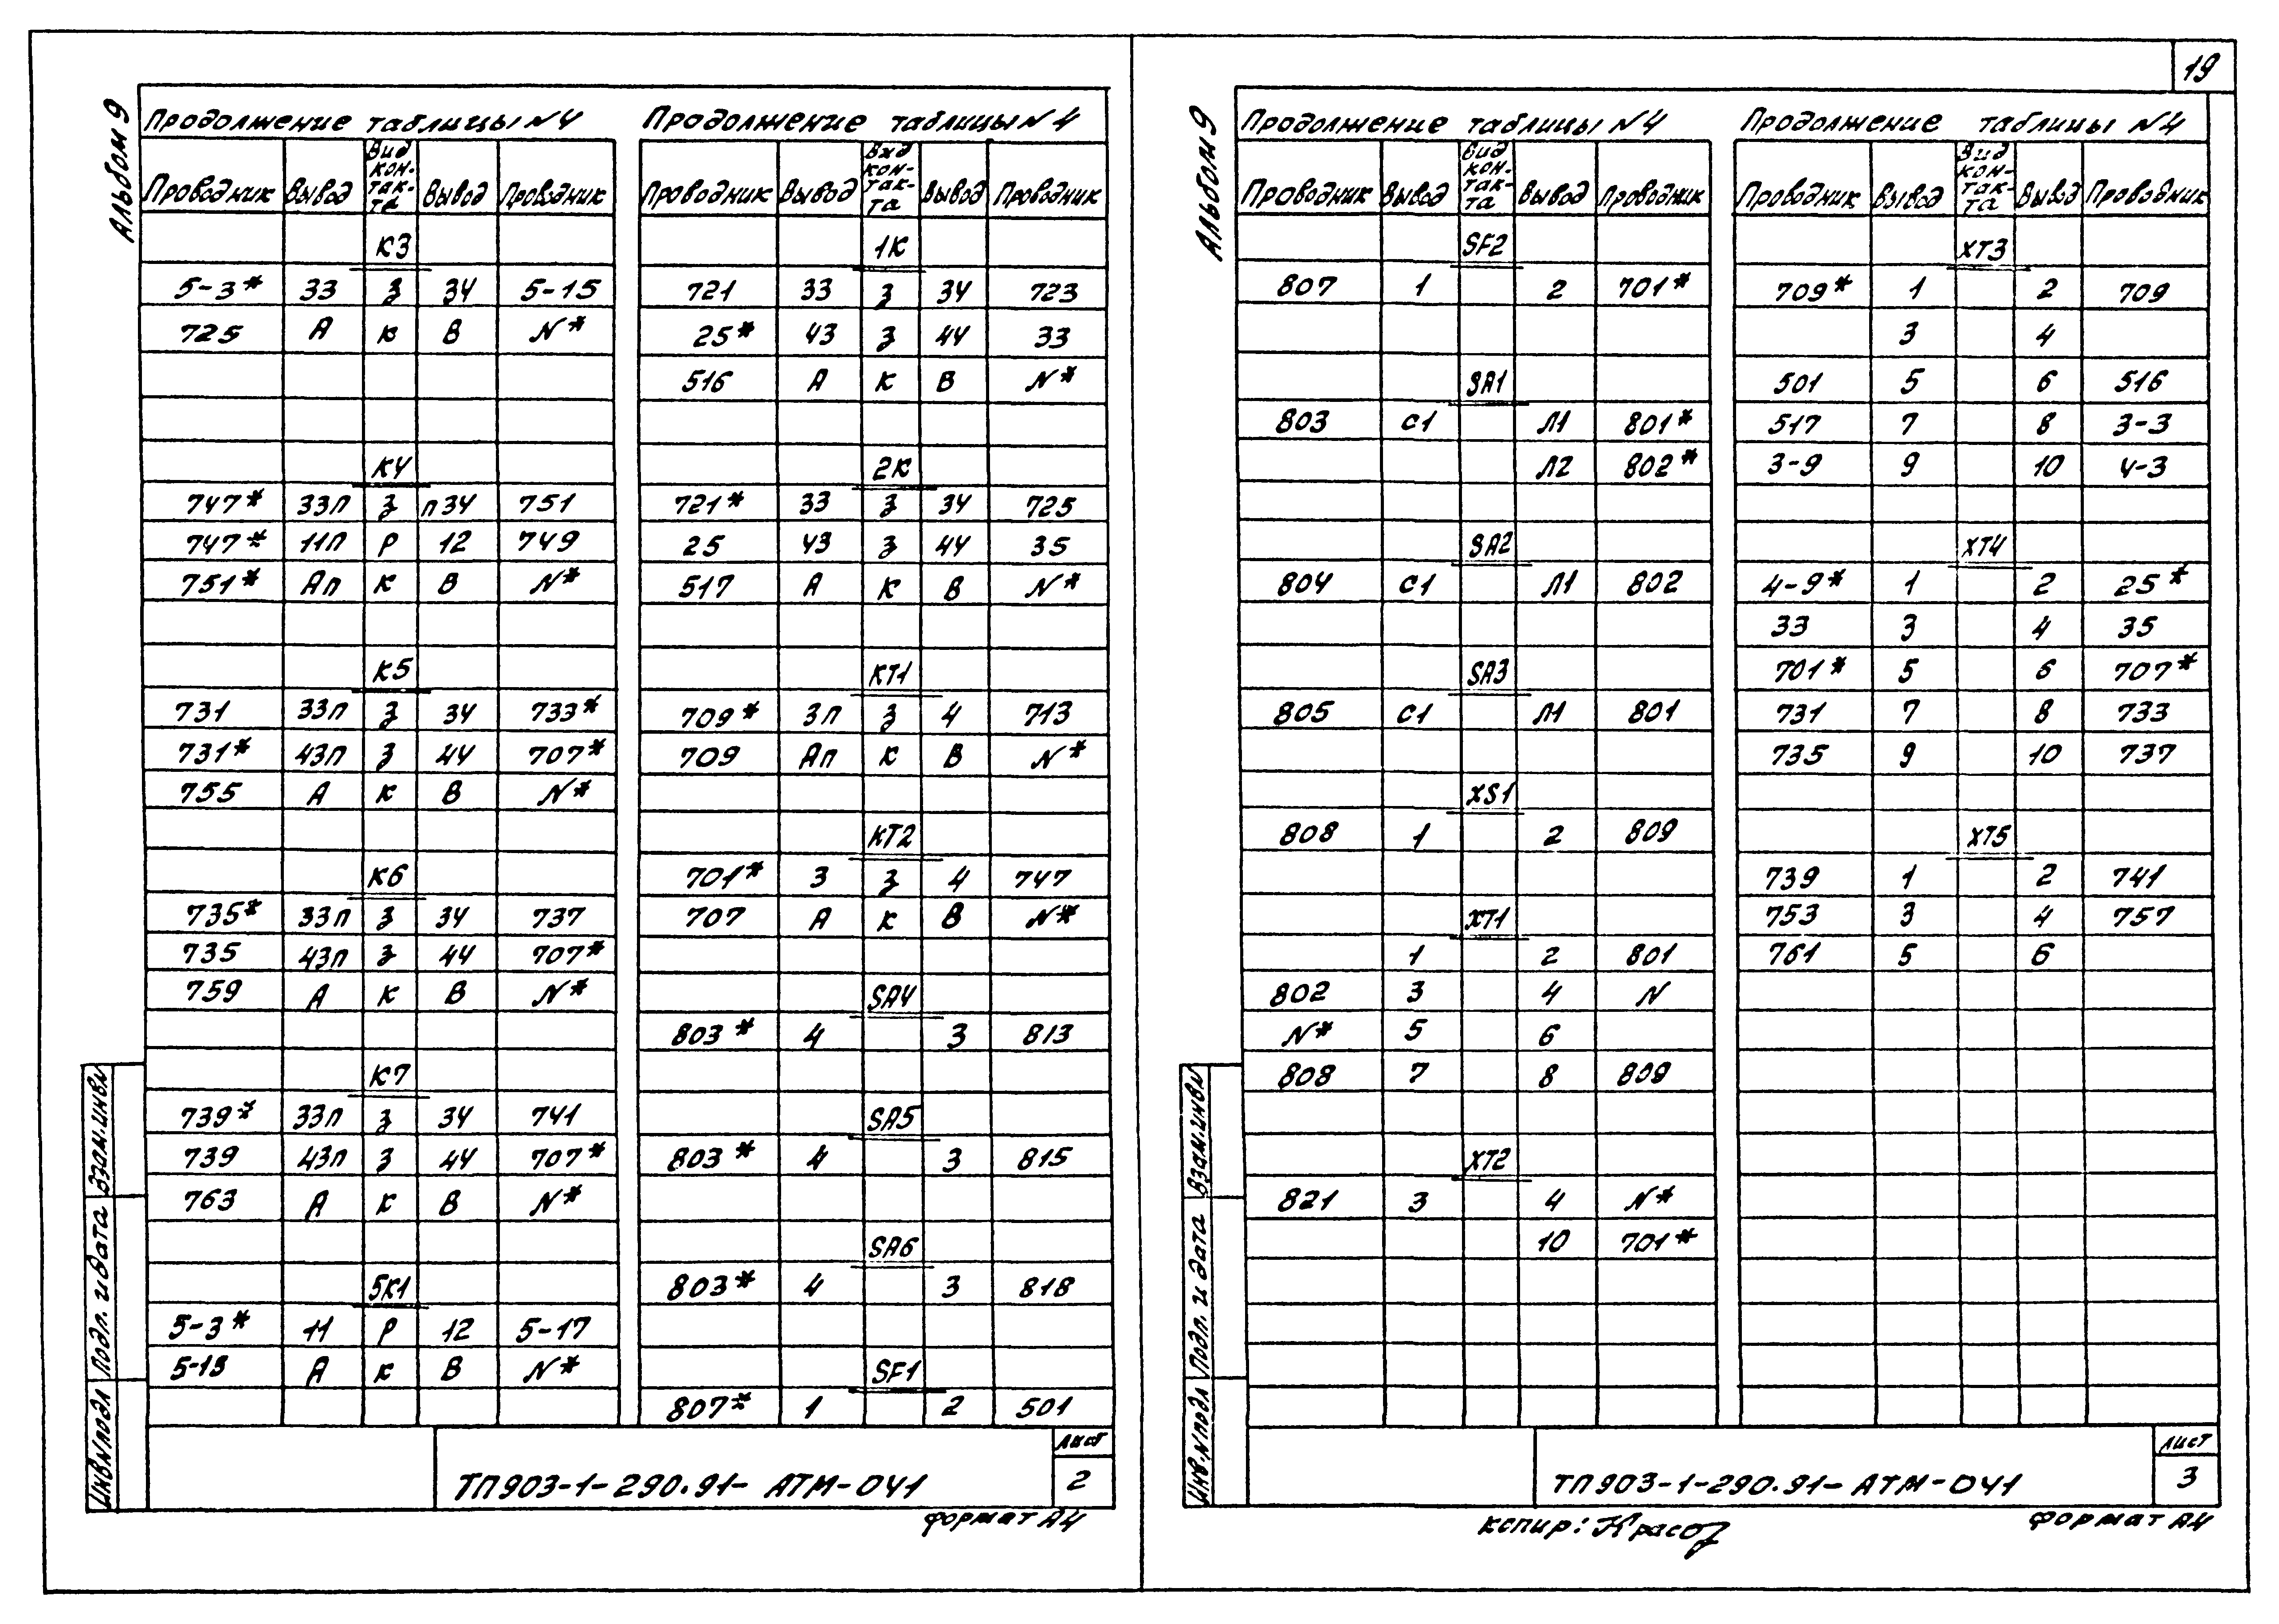 19
Альбом 9
Продолжение таблицы N4
Проводник Вывод Вид кон-так-та Вывод Проводник
К3
5-3* 33 З 34 5-15
725 А К В N*
К4
747* 33П З П34 751
747* 11П Р 12 749
751* АП К В N*
К5
731 33П З 34 733*
731* 43П З 44 707*
755 А К В N*
К6
735* 33П З 34 737
735 43П З 44 707*
759 А К В N*
К7
739* 33П З 34 741
739 43П З 44 707*
763 А К В N*
5К1
5-3* 11 Р 12 5-17
5-13 А К В N*
Продолжение таблицы N4
Проводник Вывод Вид кон-так-та Вывод Проводник
1К
721 33 З 34 723
25* 43 З 44 33
516 А К В N*
2К
721* 33 З 34 725
25 43 З 44 35
517 А К В N*
КТ1
709* 3П З 4 713
709 АП К В N*
КТ2
701* 3 З 4 747
707 А К В N*
SA4
803* 4 3 813
SA5
803* 4 3 815
SA6
803* 4 3 818
SF1
807* 1 2 501
Взам.инвN
Подп. и дата
Инв.Nподл
ТП903-1-290.91- АТМ-041
Лист
2
Формат А4
Альбом 9
Продолжение таблицы N4
Проводник Вывод Вид кон-так-та Вывод Проводник
SF2
807 1 2 701*
SA1
803 С1 Л1 801*
Л2 802*
SA2
804 С1 Л1 802
SA3
805 С1 Л1 801
XS1
808 1 2 809
XT1
1 2 801
802 3 4 N
N* 5 6
808 7 8 809
XT2
821 3 4 N*
10 701*
Продолжение таблицы N4
Проводник Вывод Вид кон-так-та Вывод Проводник
XT3
709* 1 2 709
3 4
501 5 6 516
517 7 8 3-3
3-9 9 10 4-3
XT4
4-9* 1 2 25*
33 3 4 35
701* 5 6 707*
731 7 8 733
735 9 10 737
XT5
739 1 2 741
753 3 4 757
761 5 6
Взам.инвN
Подп. и дата
Инв.Nподл
ТП903-1-290.91- АТМ-041
Лист
3
копир:
Формат А4